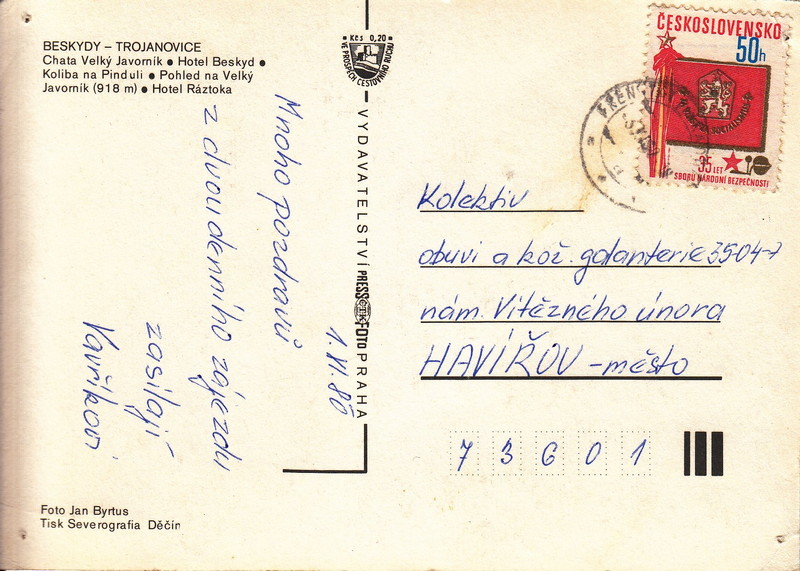 BESKYDY – TROJANOVICE
Chata Velký Javorník • Hotel Beskyd •
Koliba na Pinduli • Pohled na Velký
Javorník (918 m) • Hotel Ráztoka
Kčs 0,20
VE PROSPĚCH CESTOVNÍHO RUCHU
VYDAVATELSTVÍ PRESSFOTO PRAHA
ČTK
ČESKOSLOVENSKO
50h
SOCIALISMUS
35 LET
SBORU NÁRODNÍ BEZPEČNOSTI
Mnoho pozdravů
z dvoudenního zájezdu
zasílají
Vavříkovi
1. XI. 80
Kolektiv
obuvi a kož. galanterie 3504-7
nám. Vítězného února
HAVÍŘOV – město
73601
Foto Jan Byrtus
Tisk Severografia Děčín